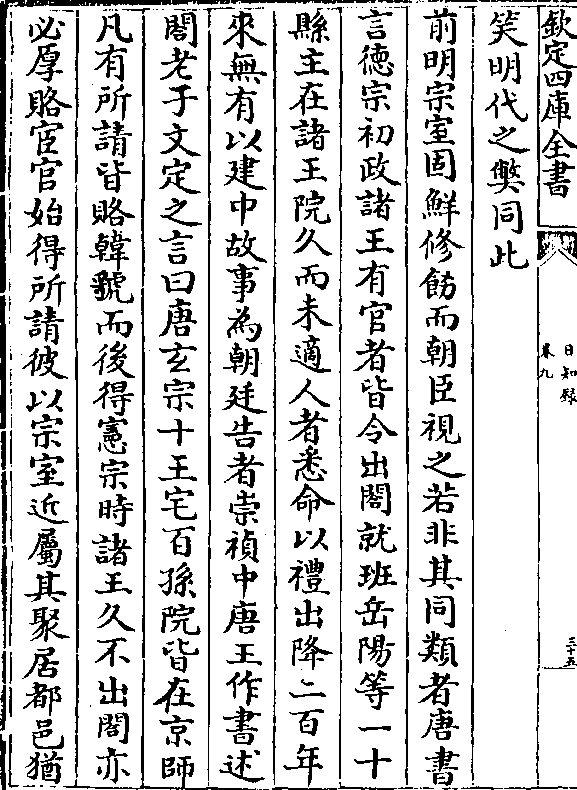 欽定四庫全書
日知錄
卷九
三十五
笑明代之弊同此
前明宗室固鮮修飭而朝臣視之若非其同類者唐書
言德宗初政諸王有官者皆令出閤就班岳陽等一十
縣主在諸王院久而未適人者悉命以禮出降二百年
來無有以建中故事為朝廷告者崇禎中唐王作書述
閣老于文定之言曰唐玄宗十王宅百孫院皆在京師
凡有所請皆賂韓虢而後得憲宗時諸王久不出閤亦
必厚賂宦官始得所請彼以宗室近屬其聚居都邑猶